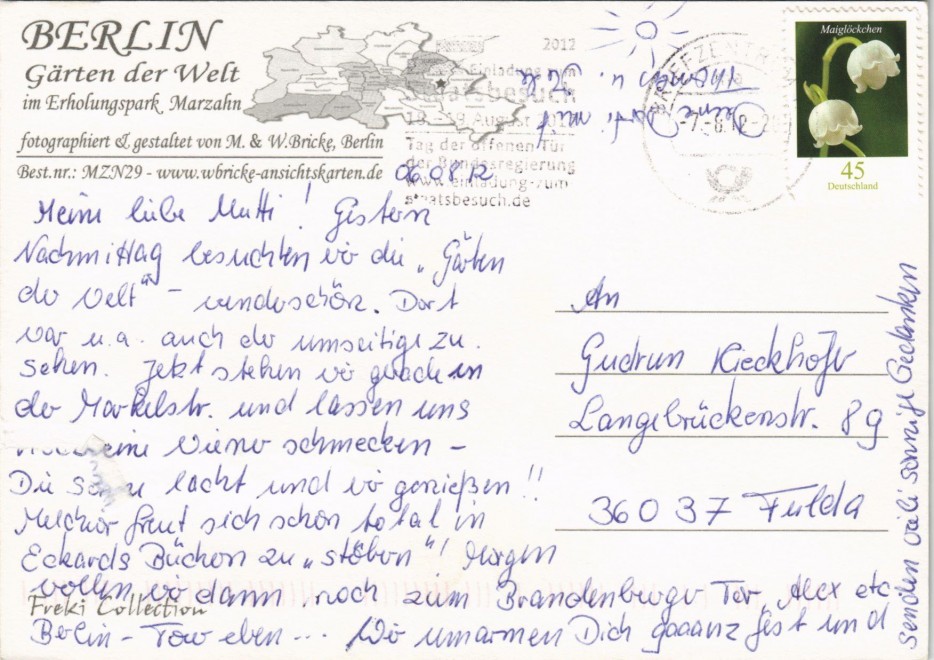 BERLIN
Gärten der Welt
im Erholungspark Marzahn
fotographiert & gestaltet von M. & W.Bricke, Berlin
Best.nr.: MZN29 - www.wbricke-ansichtskarten.de
2012
Einladung zum
Staatsbesuch
18.-19. August 2012
Tag der offenen Tür
der Bundesregierung
www.einladung-zum-
staatsbesuch.de
BRIEFZENTR
-7.-8.12-20
Maiglöckchen
45
Deutschland
06.08.12
Meine liebe Mutti! Gestern
Nachmittag besuchten wir die „Gärten
der Welt" – wunderschön. Dort
war u.a. auch der umseitige zu
sehen. Jetzt stehen wir gerade in
der Markelstr. und lassen uns
eine Wiener schmecken –
Die Sonne lacht und wir genießen!!
Melchior freut sich schon total in
Eckards Büchern zu „stöbern"! Morgen
wollen wir dann noch zum Brandenburger Tor, Alex etc.
Berlin-Tour eben... Wir umarmen Dich gaaanz fest und
senden viele sonnige Gedanken
Thomas u.
An
Gudrun Rieckhofer
Langebrückenstr. 89
36037 Fulda
Freki Collection